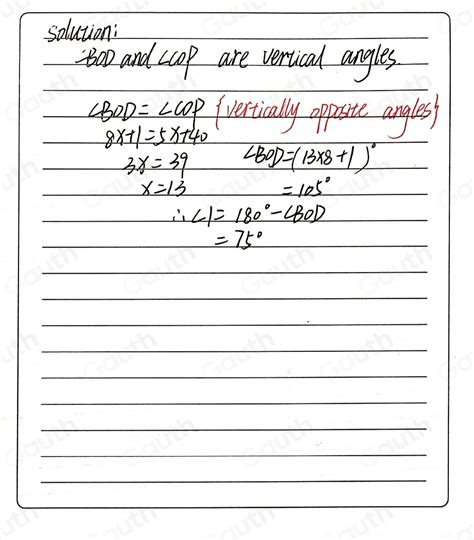 Solution:
∠BOD and ∠COP are vertical angles.
∠BOD = ∠COP {vertically opposite angles}
8x+1=5x+40
3x = 39 ∠BOD=(13x8+1)°
x=13 =105°
∴ ∠1 = 180° - ∠BOD
= 75°